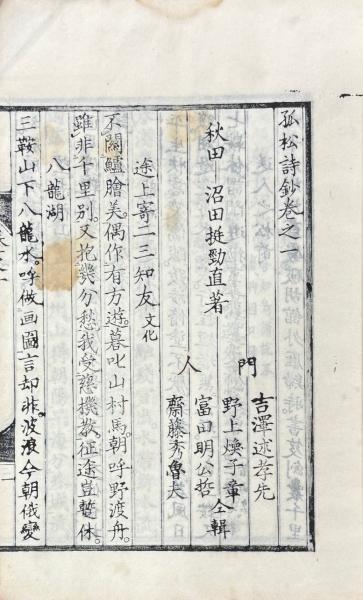 孤松詩鈔巻之一
秋田 沼田挺勁直著
門
人
吉澤述孝先
野上煥子章
富田明公哲
齋藤秀魯夫
仝輯
途上寄二三知友 文化
不關鱸膾美。偶作有方遊。暮叱山村馬。朝呼野渡舟。
雖非千里別。又抱幾分愁。我受強撥教。征途豈暫休。
八龍湖
三鞍山下八龍水。呼做画圖言却非。波浪今朝俄變